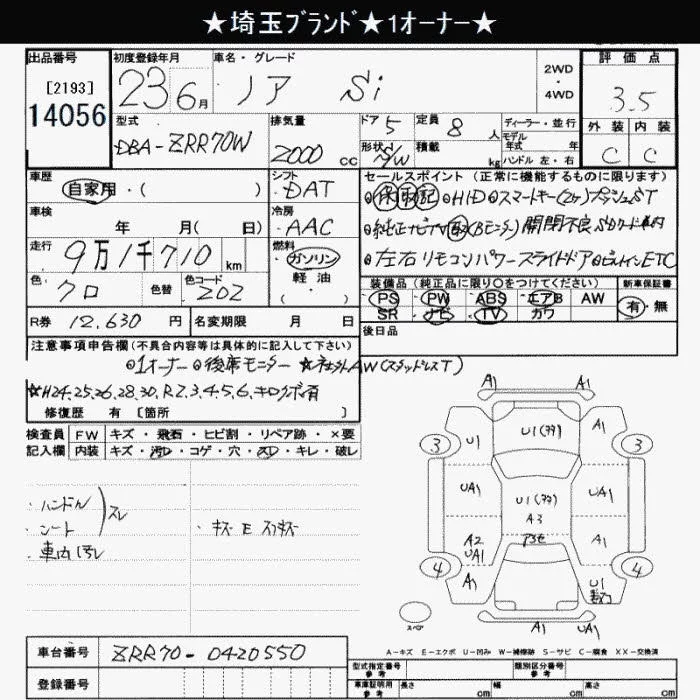 ★埼玉ブランド★1オーナー★
出品番号
[2193]
14056
初度登録年月
23 6月
車名・グレード
ノア Si
2WD
・
4WD
評価点
3.5
外装 内装
C C
型式
DBA-ZRR70W
排気量
2000 CC
ドア 5
形状 /W
定員 8 人
積載 kg
ディーラー・並行
モデル
年式 年
ハンドル 左・右
車歴
自家用・( )
シフト
DAT
車検
年 月( 日)
冷房
AAC
走行
9万1千710 km
燃料
ガソリン
軽油
・( )
色
クロ
色替
色コード
202
セールスポイント (正常に機能するものに限ります)
HID スマートキー(2ヶ) プッシュST
純正ナビTV (Bモニター) 開閉不良
左右リモコンパワースライドドア ビルトインETC
装備品 (純正品に限り○をつけてください)
PS PW ABS エアB AW
SR ナビ TV カワ
新車保証書
有・無
R券 12,630 円
名変期限 月 日
後日品
注意事項申告欄 (不具合内容等は具体的に記入して下さい)
1オーナー 後席モニター AW(スタッドレスT)
☆H24.25.26.28.30.R2.3.4.5.6.キロクボ有
修復歴 有 [箇所 ]
検査員 FW キズ・飛石・ヒビ割・リペア跡・×要
記入欄 内装 キズ・汚れ・コゲ・穴・スレ・キレ・破レ
・ハンドル
・シート
スレ
・車内汚レ
・キズ E スリキズ
A1 A1
3 U1 U1 A1 3
UA1 U1 UA1
A3
A2
UA1
A1
4 A1 U1 4
A1 UA1
スペア
A-キズ E-エクボ U-凹み W-補修跡 S-サビ C-腐食 XX-交換済
車台番号 ZRR70-0420550
登録番号
型式指定番号
参考
類別区分番号
参考
車庫証明用
参考
長さ cm 幅 cm 高さ cm